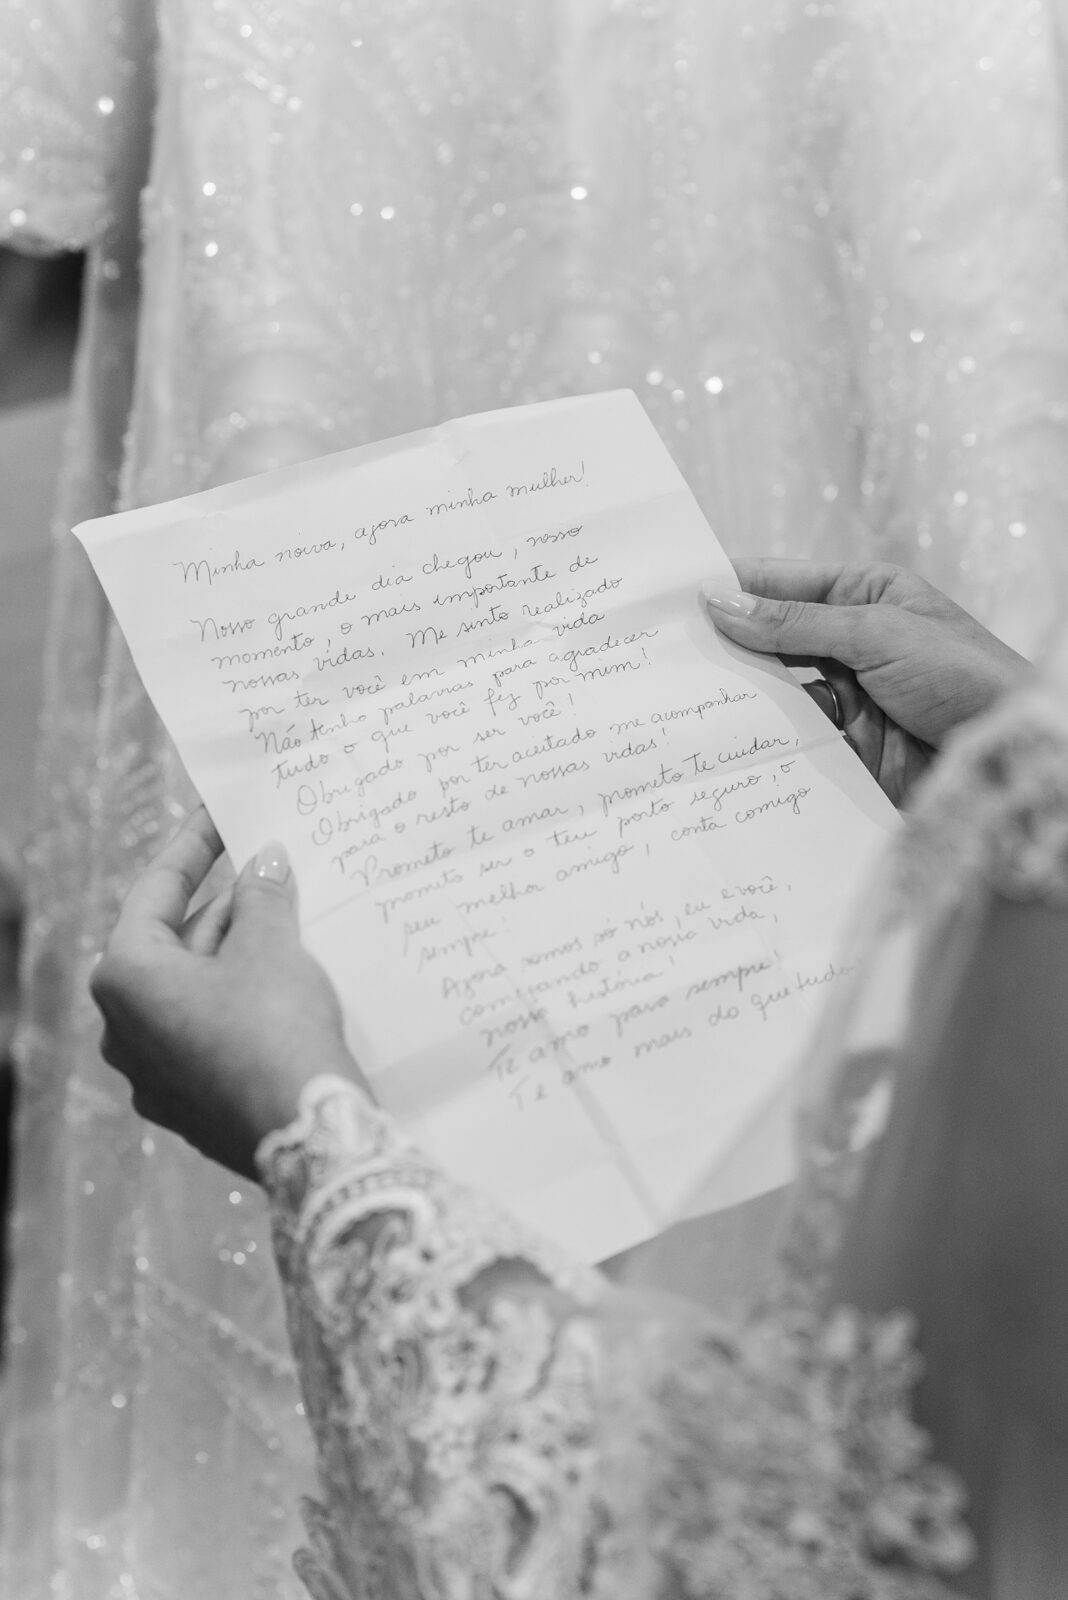 Minha noiva, agora minha mulher!
Nosso grande dia chegou, nosso
momento, o mais importante de
nossas vidas. Me sinto realizado
por ter você em minha vida
Não tenho palavras para agradecer
tudo o que você fez por mim!
Obrigado por ser você!
Obrigado por ter aceitado me acompanhar
para o resto de nossas vidas!
Prometo te amar, prometo te cuidar,
prometo ser o teu porto seguro, o
seu melhor amigo, conta comigo
sempre!
Agora somos só nós, eu e você,
começando a nossa vida,
nossa história!
Te amo para sempre!
Te amo mais do que tudo!